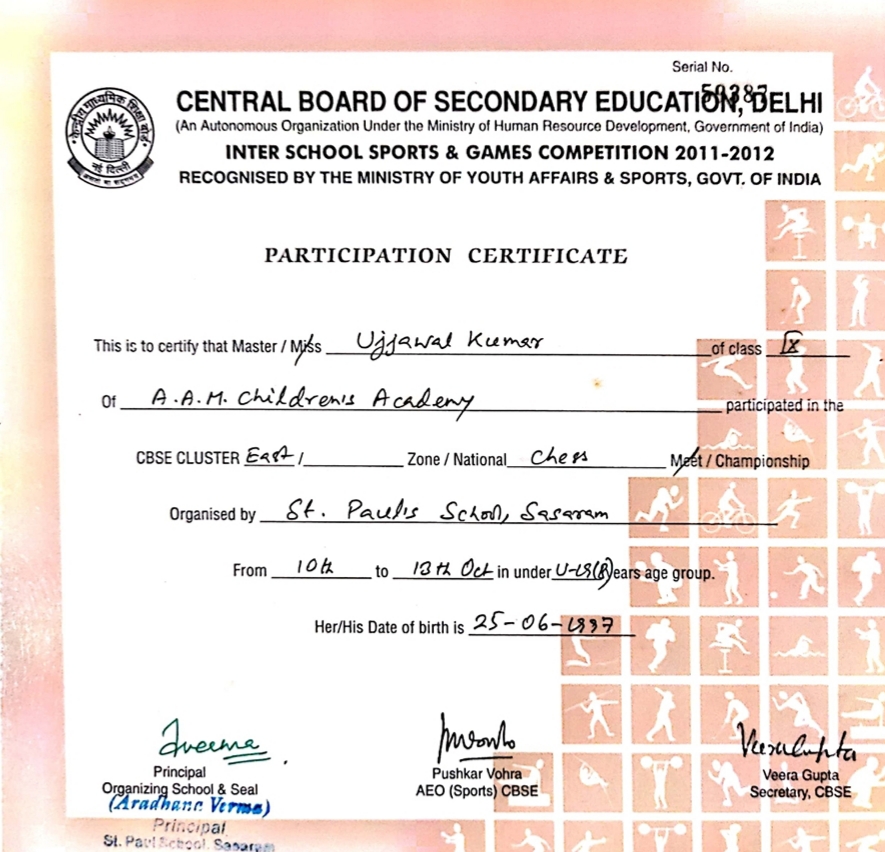 Serial No.
59387
CENTRAL BOARD OF SECONDARY EDUCATION, DELHI
(An Autonomous Organization Under the Ministry of Human Resource Development, Government of India)
INTER SCHOOL SPORTS & GAMES COMPETITION 2011-2012
RECOGNISED BY THE MINISTRY OF YOUTH AFFAIRS & SPORTS, GOVT. OF INDIA
केन्द्रीय माध्यमिक शिक्षा बोर्ड
नई दिल्ली
PARTICIPATION CERTIFICATE
This is to certify that Master / Miss Ujjawal Kumar of class IX
Of A.A.M. Children's Academy participated in the
CBSE CLUSTER East / Zone / National Chess Meet / Championship
Organised by St. Paul's School, Sasaram
From 10th to 13th Oct in under U-19(B) years age group.
Her/His Date of birth is 25-06-1997
Veerma
Principal
Organizing School & Seal
(Aradhana Verma)
Principal
St. Paul School, Sasaram
Pushkar Vohra
AEO (Sports) CBSE
Veera Gupta
Veera Gupta
Secretary, CBSE